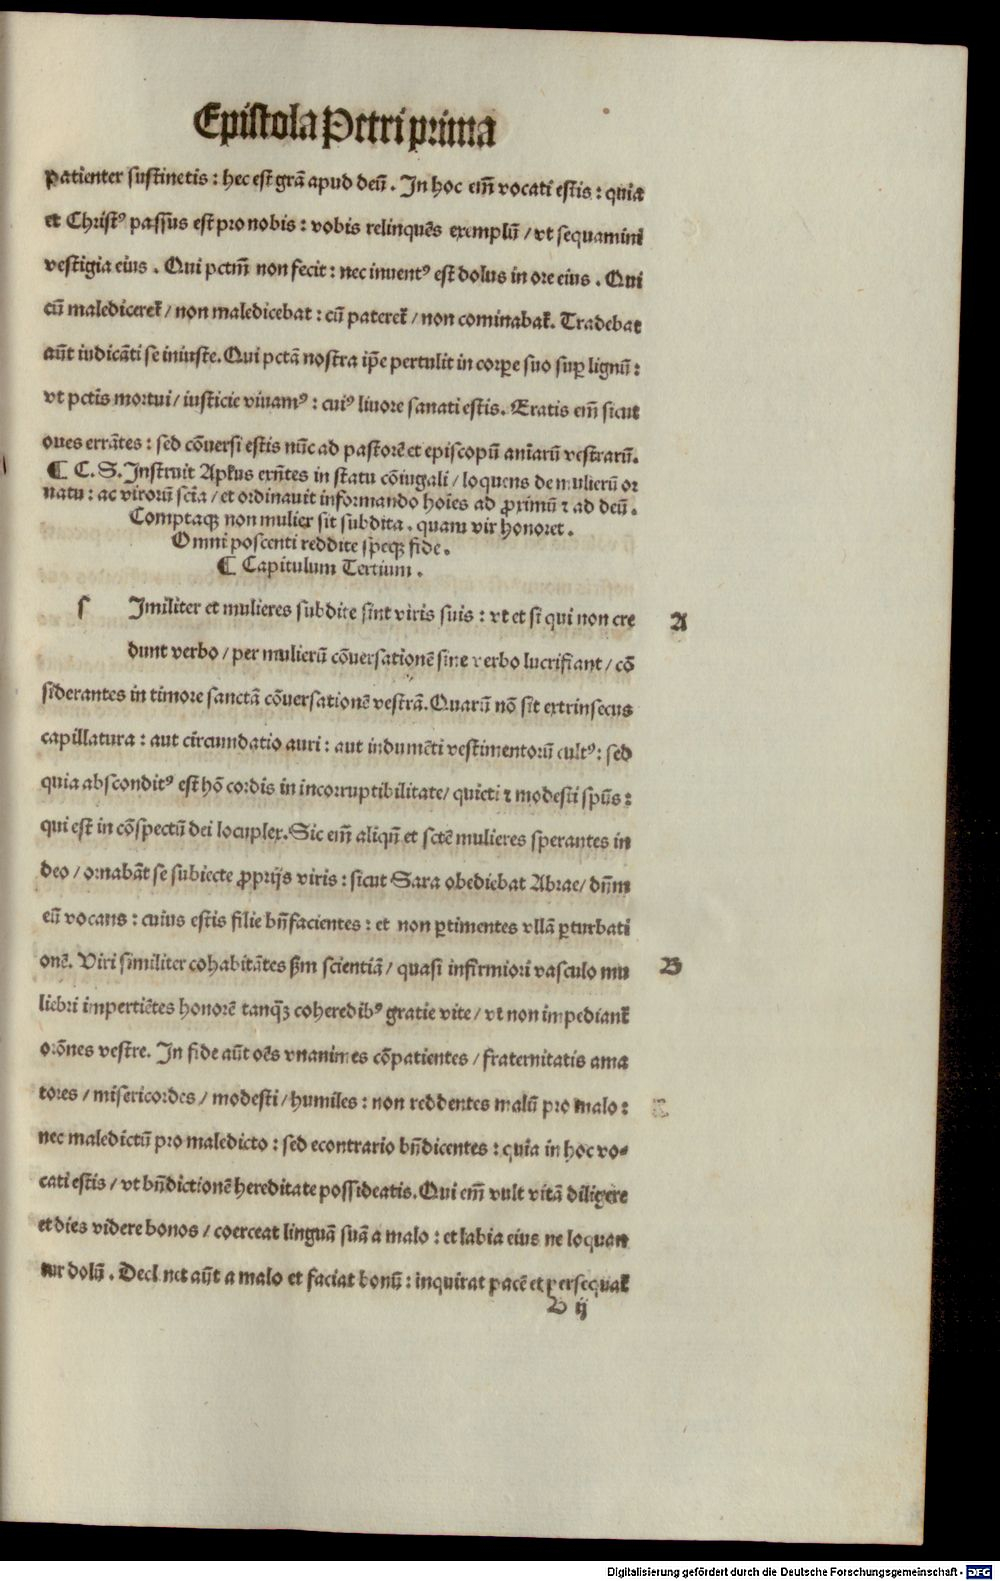 Epistola Petri prima
patienter sustinetis : hec est grā apud deū . In hoc em̄ vocati estis : quia
et Christꝰ passus est pro nobis : vobis relinquēs exemplū / vt sequamini
vestigia eius . Qui pctm̄ non fecit : nec inventꝰ est dolus in ore eius . Qui
cū malediceret̄ / non maledicebat : cū pateret̄ / non cominabat̄. Tradebat
aūt iudicāti se iniuste. Qui pctā nostra ip̄e pertulit in corꝑe suo suꝑ lignū :
vt pctīs mortui / iusticie viuamꝰ : cuiꝰ liuore sanati estis. Eratis em̄ sicut
oues errātes : sed cōversi estis nūc ad pastorē et episcopū aniarū vestrarū.
¶ C. S. Instruit Apl'us exn̄tes in statu cōiugali / loquens de mulierū or
natu : ac virorū scīa / et ordinauit informando hoīes ad ꝓximū ⁊ ad deū .
Comptaqꝫ non mulier sit subdita . quam vir honoret .
Omni poscenti reddite speqꝫ fide .
¶ Capitulum Tertium .
s Imiliter et mulieres subdite sint viris suis : vt et si qui non cre
A
dunt verbo / per mulierū cōuersationē sine verbo lucrifiant / cō
siderantes in timore sanctā cōuersationē vestrā. Quarū nō sit extrinsecus
capillatura : aut circundatio auri : aut indumēti vestimentorū cultꝰ : sed
quia absconditꝰ est hō cordis in incorruptibilitate / quieti ⁊ modesti spūs :
qui est in cōspectū dei locuplex. Sic em̄ aliqn̄ et sctē mulieres sperantes in
deo / ornabāt se subiecte ꝓprijs viris : sicut Sara obediebat Abrae / dn̄m
eū vocans : cuius estis filie bn̄facientes : et non ꝑtimentes vllā ꝑturbati
onē. Viri similiter cohabitātes ßm scientiā / quasi infirmiori vasculo mu
B
liebri impertiētes honorē tanqꝫ coheredibꝰ gratie vite / vt non impediant̄
orōnes vestre. In fide aūt oēs vnanimes cōpatientes / fraternitatis ama
tores / misericordes / modesti / humiles : non reddentes malū pro malo :
nec maledictū pro maledicto : sed econtrario bn̄dicentes : quia in hoc vo-
cati estis / vt bn̄dictionē hereditate possideatis. Qui em̄ vult vitā diligere
et dies videre bonos / coerceat linguā suā a malo : et labia eius ne loquan
tur dolū . Declinet aūt a malo et faciat bonū : inquirat pacē et persequat̄
B ij
Digitalisierung gefördert durch die Deutsche Forschungsgemeinschaft - DFG